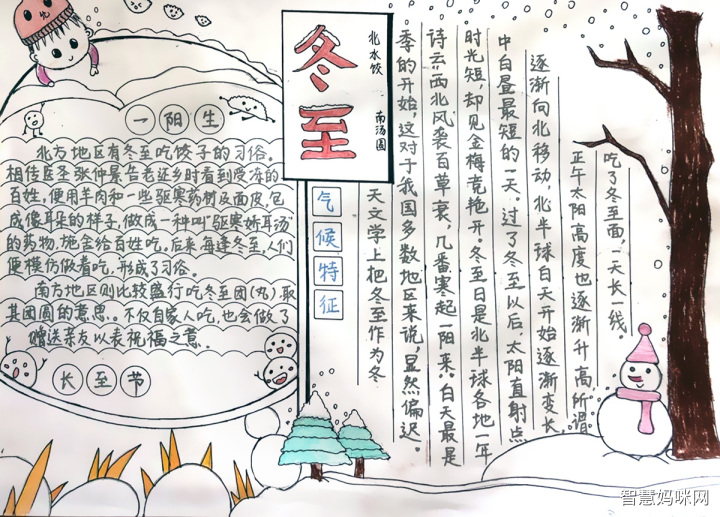 冬至
北水饺
南汤圆
一阳生
北方地区有冬至吃饺子的习俗。
相传医圣张仲景告老还乡时看到受冻的
百姓,便用羊肉和一些驱寒药材及面皮,包
成像耳朵的样子,做成一种叫“驱寒娇耳汤”
的药物,施舍给百姓吃。后来,每逢冬至,人们
便模仿做着吃,形成了习俗。
南方地区则比较盛行吃冬至团(丸)取
其团圆的意思。不仅自家人吃,也会做了
赠送亲友以表祝福之意。
长至节
气候特征
天文学上把冬至作为冬
季的开始,这对于我国多数地区来说,显然偏迟。
诗云:西北风袭百草衰,几番寒起一阳来。白天最是
时光短,却见金梅竞艳开。冬至日是北半球各地一年
中白昼最短的一天。过了冬至以后,太阳直射点
逐渐向北移动,北半球白天开始逐渐变长,
正午太阳高度也逐渐升高,所谓
吃了冬至面,一天长一线。
智慧妈咪网